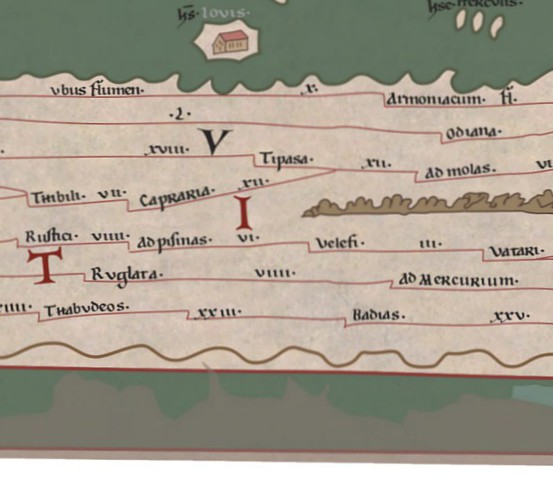 hs̅· Iovis·
hsc· Herculis·
vbus flumen· x· Armoniacum· fl̅·
·2· odiana·
xviii· V Tipasa· xii· Ad molas· vi
Thibili· vii· Capraria· xii·
I
Rustici· viiii· Ad piscinas· vi· Velefi· iii· Vatari·
T Ruglata· viiii· Ad Mercurium·
iiii· Thabudeos· xxiii· Badias· xxv·